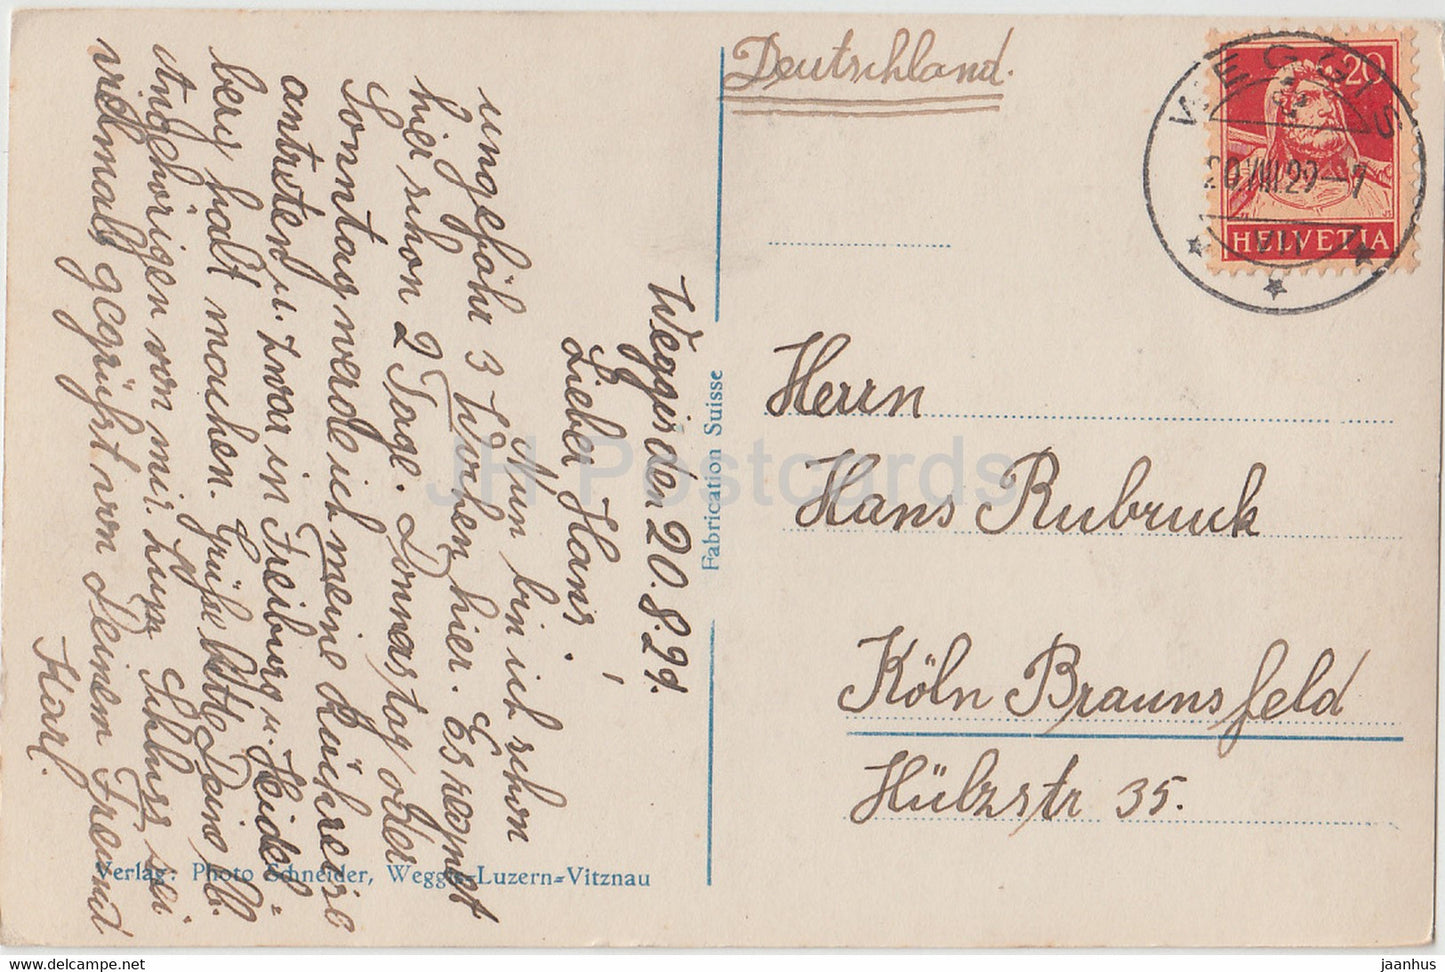 Weggis den 20.8.29.
Lieber Hans!
Nun bin ich schon
ungefähr 3 Wochen hier. Es regnet
hier schon 2 Tage. Donnerstag oder
Sonntag werde ich meine Rückreise
antreten u. zwar in Freiburg u. Heidel-
berg halt machen. Grüße bitte Deine lb.
Angehörigen von mir. Zum Schluss sei
vielmals gegrüßt von Deinem Freund
Karl.
Verlag: Photo Schneider, Weggis-Luzern-Vitznau
Fabrication Suisse
Deutschland.
WEGGIS
20.VIII.29
VII
20
HELVETIA
Herrn
Hans Rubruck
Köln Braunsfeld
Hülzstr 35.
JH Postcards
www.delcampe.net
jaanhus